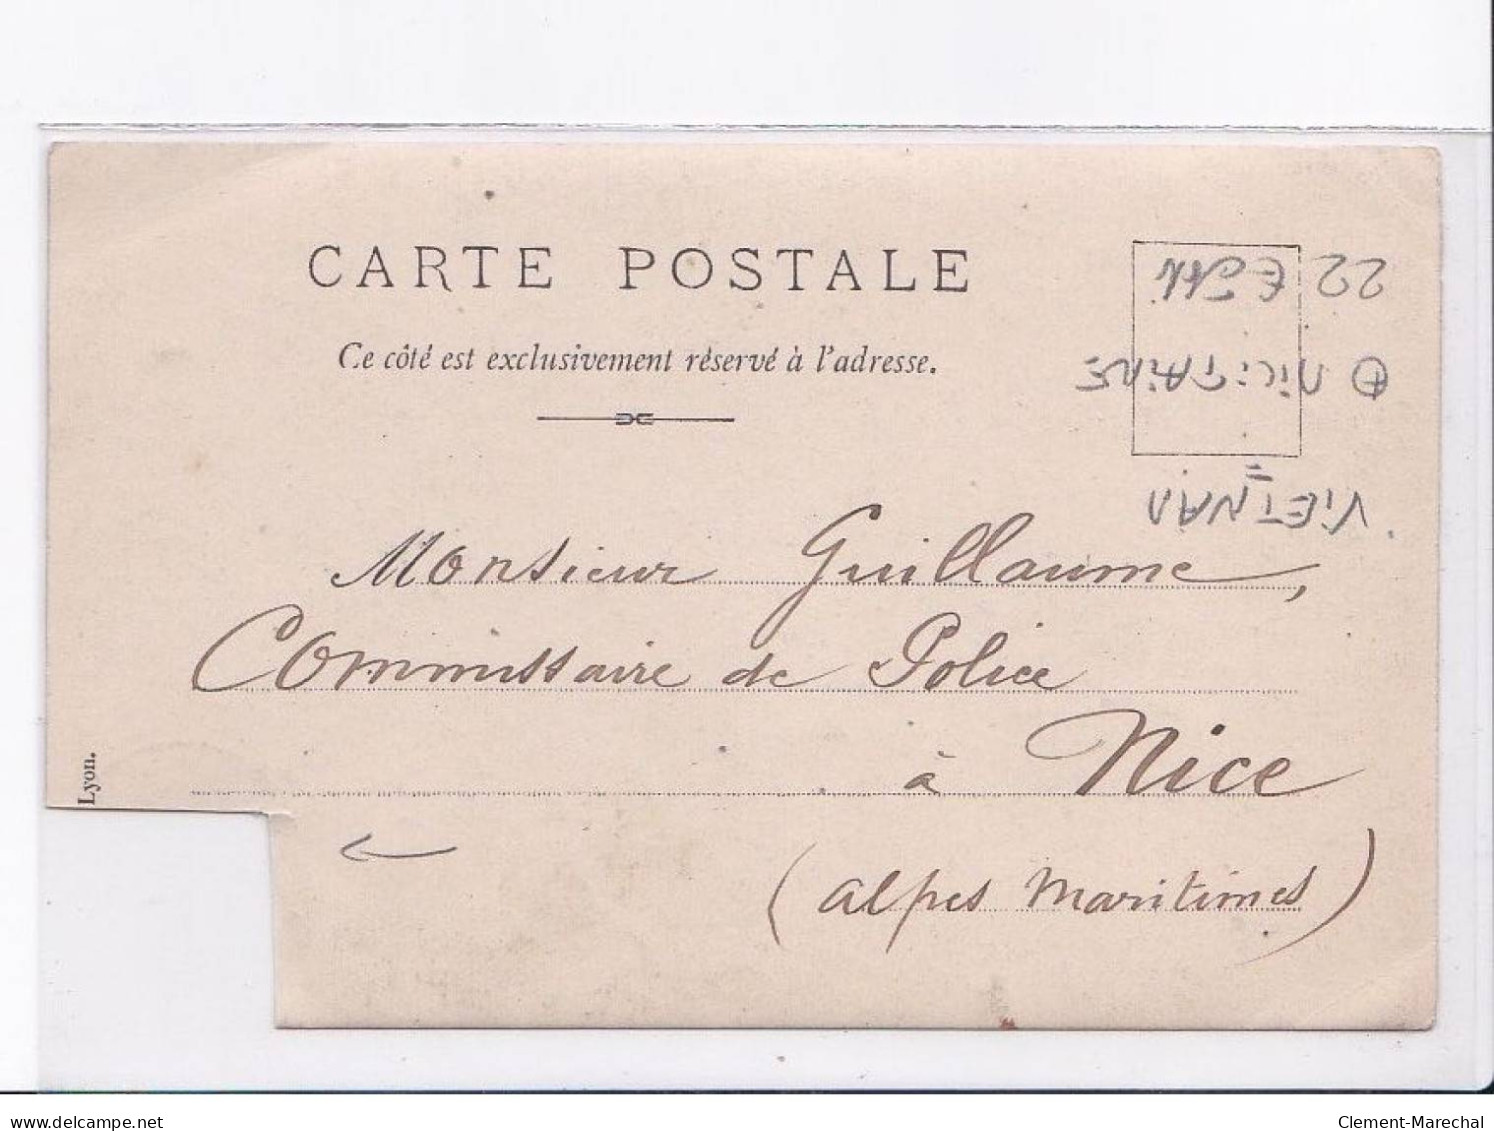 CARTE POSTALE
Ce côté est exclusivement réservé à l'adresse.
22
MILITAIRE
VIETNAM
Monsieur Guillaume,
Commissaire de Police
à Nice
(Alpes Maritimes)
Lyon.
delcampe.net
Clement-Marechal